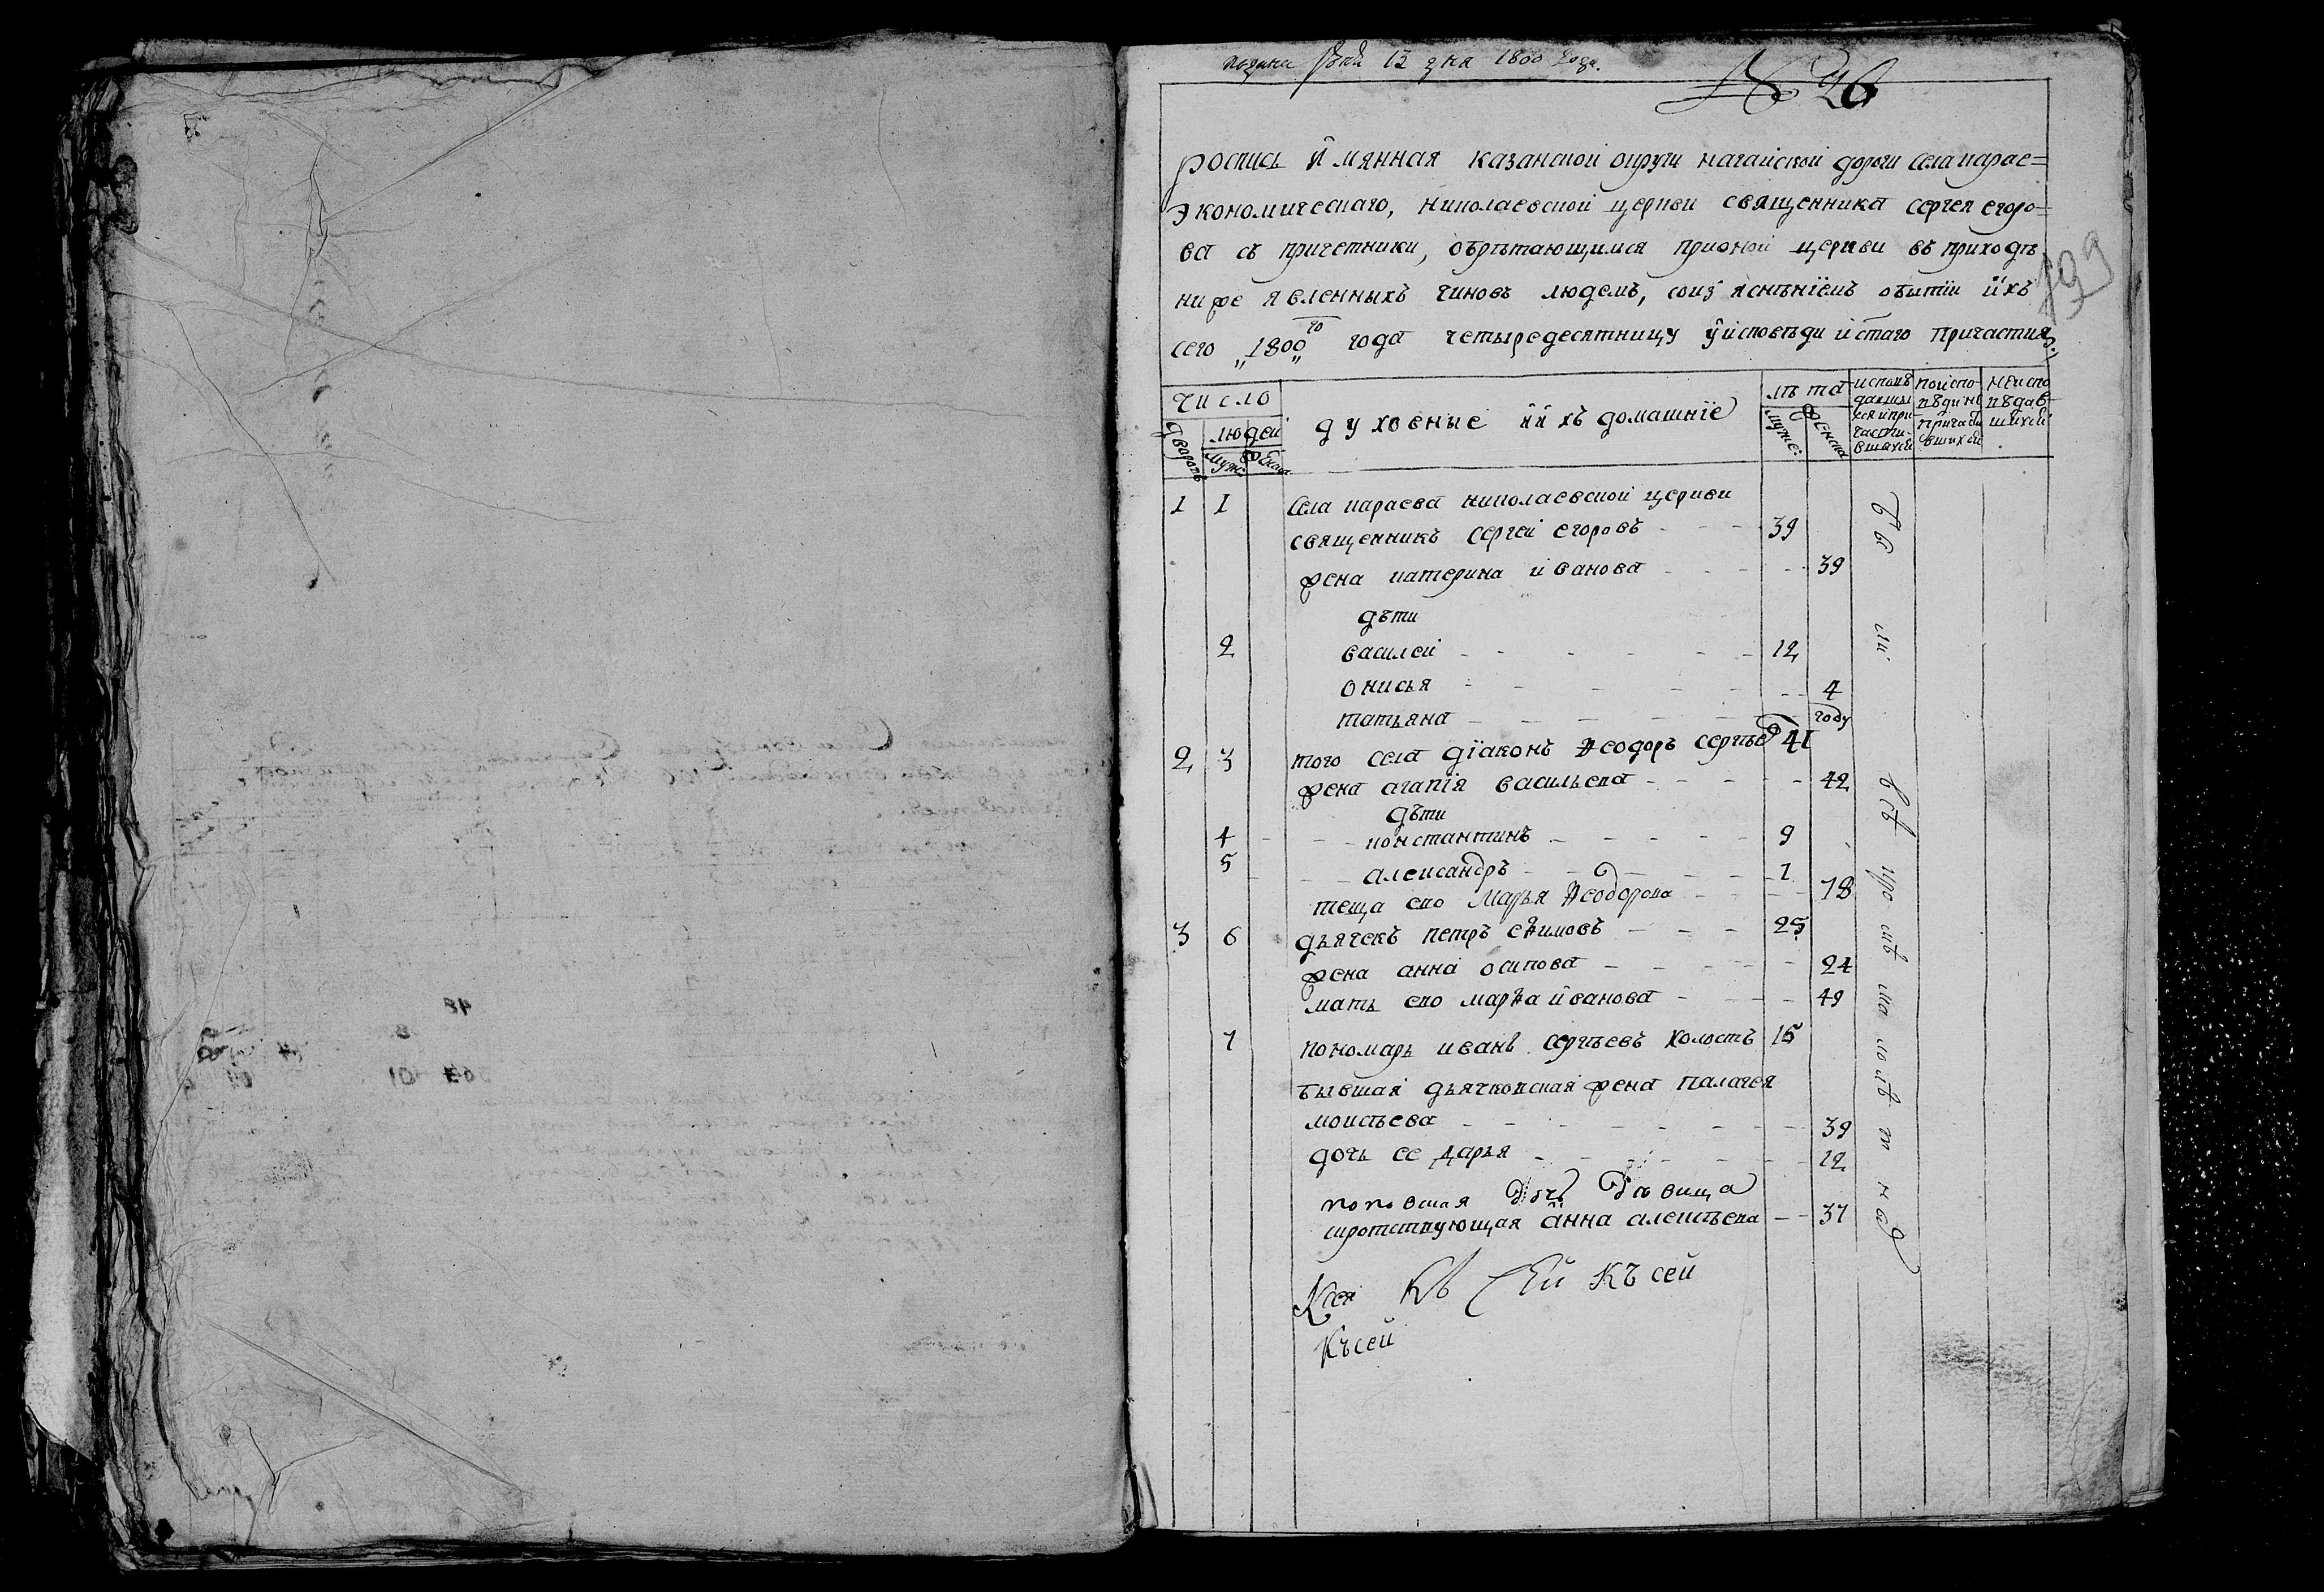 подана 12 дня 1800 года.
№ 26
199
роспись имянная казанской округи нагайской дороги села карае=
экономическаго, николаевской церкви священника сергея егоро=
ва съ причетники, обрѣтающимся при оной церкви въ приходѣ
ниже явленныхъ чиновъ людемъ, со изъяснѣнїемъ о бытїи ихъ
сего „1800„ го года четыредесятницу у исповѣди и стаго причастия
число
дворовъ
людей
муже:
женска
духовные и ихъ домашнїе
лѣта
муже:
женска
исповѣ
давшы
еся и при
части
вшихся
по испо
вѣди не
причасти
вшихся
не испо
вѣдав
шихся
1 1 села караева николаевской церкви
священникъ сергей егоровъ 39
жена катерина иванова 39
дѣти
2 василей 12
онисья 4
татьяна году
2 3 того села дїаконъ ѳеодоръ сергѣев 41
жена агапїя васильева 42
дѣти
4 константинъ 9
5 александръ 1
теща ево марья ѳеодорова 78
3 6 дьячекъ петръ еѳимовъ 25
жена анна осипова 24
мать ево марѳа иванова 49
7 пономарь иванъ сергѣевъ холостъ 15
бывшая дьячковская жена палагея
моисѣева 39
дочь ее дарья 12
поповская дочь дѣвица
сиротствующая анна алексѣева 37
бы ли всѣ кро мѣ ма ло лѣ т на
Ксея Къ Сей Къ сей
Къ сей